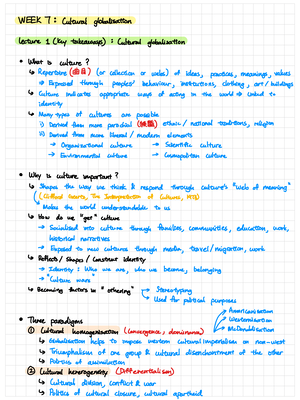 WEEK 7 : Cultural globalisation
Lecture 1 (Key takeaways) : Cultural globalisation
• What is culture?
↳ Repertoire (曲目) (or collection or webs) of ideas, practices, meanings, values
→ Exposed through peoples' behaviour, institutions, clothing, art / buildings
↳ Culture indicates appropriate ways of acting in the world → Linked to
identity
↳ Many types of cultures are possible
i) Derived from more parochial ethnic / national traditions, religion
ii) Derived from more liberal / modern elements
→ Organisational culture → Scientific culture
→ Environmental culture → Cosmopolitan culture
• Why is culture important?
↳ Shapes the way we think & respond through culture's "web of meaning"
(Clifford Geertz, The Interpretation of Cultures, 1973)
Makes the world understandable to us
↳ How do we "get" culture
→ Socialised into culture through families, communities, education, work,
historical narratives
→ Exposed to new cultures through media, travel / migration, work
↳ Reflects / Shapes / Construct identity
→ Identity : Who we are, who we become, belonging
→ "Culture wars"
↳ Becoming factors in "othering" → Stereotyping
→ Used for political purposes
• Three paradigms
→ Americanisation
→ Westernisation
→ McDonaldisation
① Cultural homogenisation (Convergence, dominance)
↳ Globalisation helps to impose western cultural imperialism on non-west
↳ Triumphalism of one group & cultural disenchantment of the other
↳ Politics of assimilation
② Cultural heterogeneity (Differentialism)
↳ Cultural division, conflict & war
↳ Politics of cultural closure, cultural apartheid